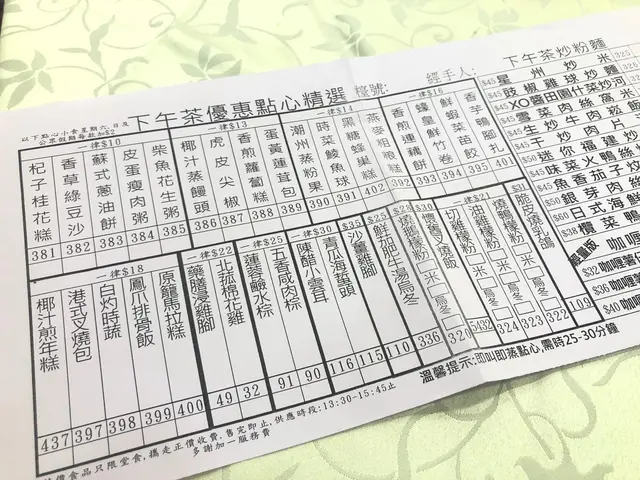 下午茶優惠點心精選
檯號:
經手人:
以下點心小食星期六.日及
公眾假期每款加$2
一律$10
杞子桂花糕 381
香草綠豆沙 382
蘇式蔥油餅 383
皮蛋瘦肉粥 384
柴魚花生粥 385
一律$13
椰汁蒸饅頭 386
虎皮尖椒 387
香煎蘿蔔糕 388
蛋黃蓮茸包 389
一律$14
潮州蒸粉果 390
時菜鯪魚球 391
黑糖蜂巢糕 402
燕麥粗糧糕 392
一律$16
香煎蓮藕餅 393
錢皇鮮竹卷 394
鮮蝦菜苗餃 395
香芋鴨腳扎 401
一律$18
椰汁煎年糕 437
港式叉燒包 397
白灼時蔬 398
鳳爪排骨飯 399
原籠馬拉糕 400
一律$22
藥膳浸雞腳 49
北菰棉花雞 32
一律$25
蓮蓉鹼水棕 91
五香咸肉棕 90
一律$30
陳醋小雲耳 116
青瓜海蜇頭 115
$35
沙薑雞腳 110
$25
鮮茄肥牛湯烏冬 336
一律$21
320
5432
324
323
322
$31
脆皮燒乳鴿 109
下午茶炒粉麵
$45 星州炒米 325
$45 豉椒雞球炒麵 326
$45 XO醬田園什菜炒河
$45 雪菜肉絲窩米
$45 生炒牛肉崧飯
$45 干炒肉片
$50 迷你福建炒
$45 味菜火鴨絲
$45 魚香茄子
$50 銀芽肉絲
$60 日式海鮮
$38 欖菜
$32 咖喱薯仔
$36 咖喱
$40 咖喱
溫馨提示:即叫即蒸點心,需時25-30分鐘
價食品只限堂食,攜走正價收費.售完即止,供應時段:13:30-15:45止
多謝加一服務費